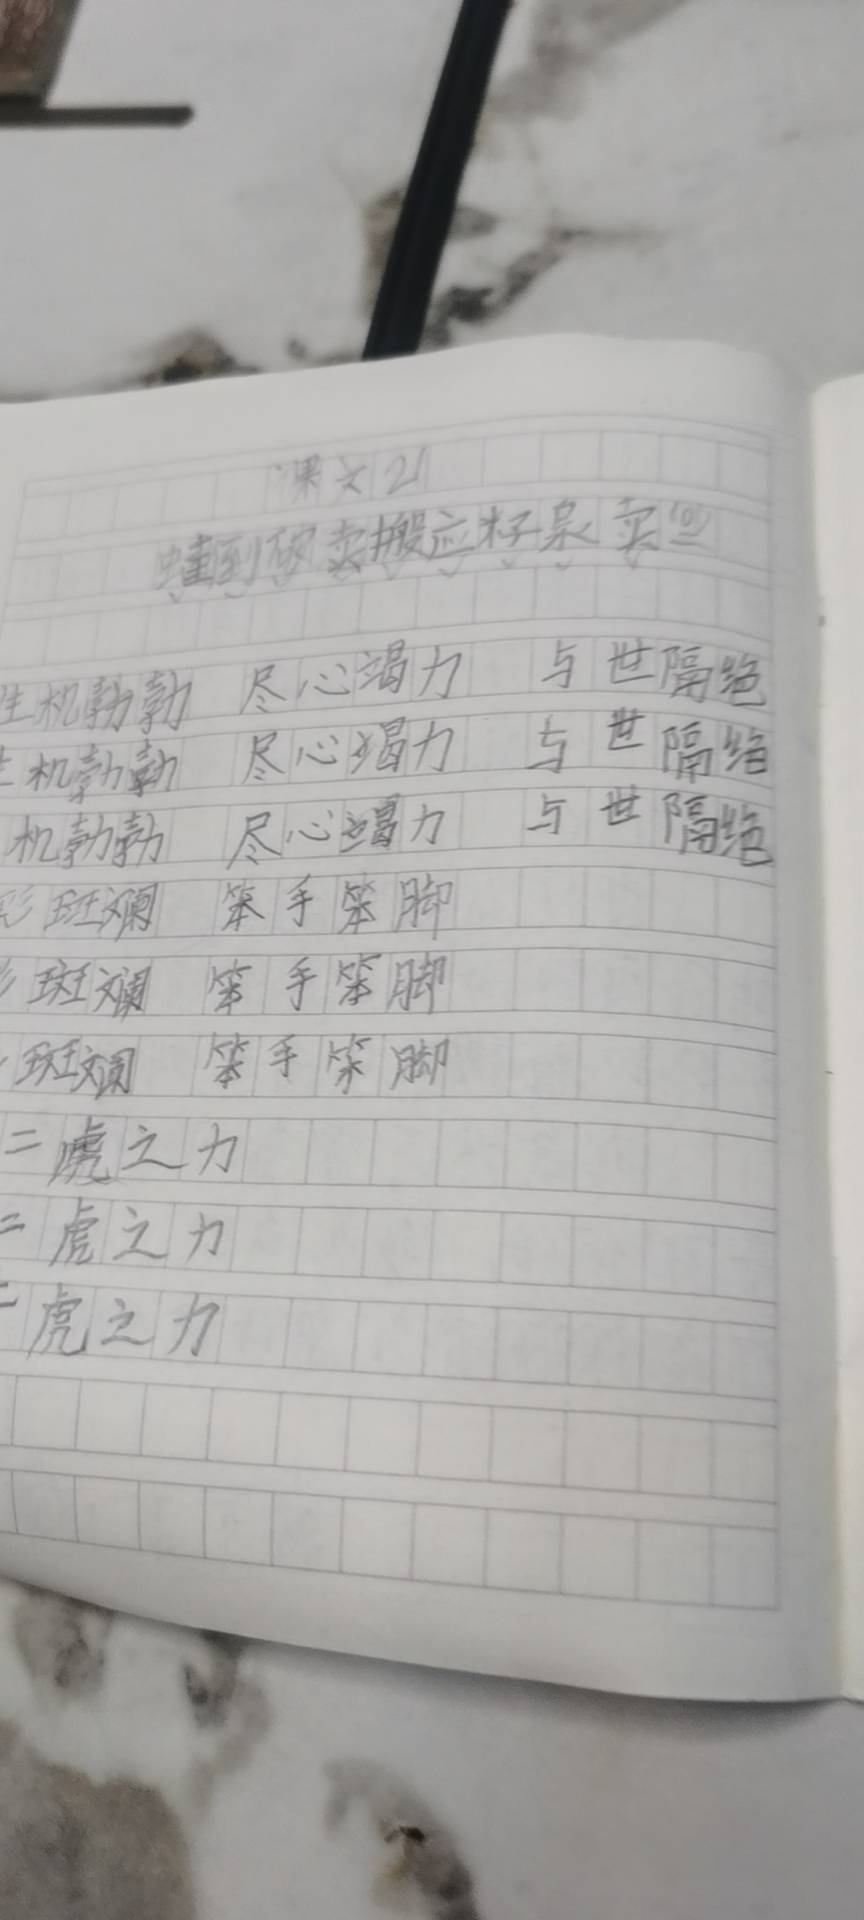 课文21
蛙到破卖搬应籽泉卖
生机勃勃 尽心竭力 与世隔绝
机勃勃 尽心竭力 与世隔绝
机勃勃 尽心竭力 与世隔绝
彩斑斓 笨手笨脚
斑斓 笨手笨脚
斑斓 笨手笨脚
二虎之力
二虎之力
二虎之力